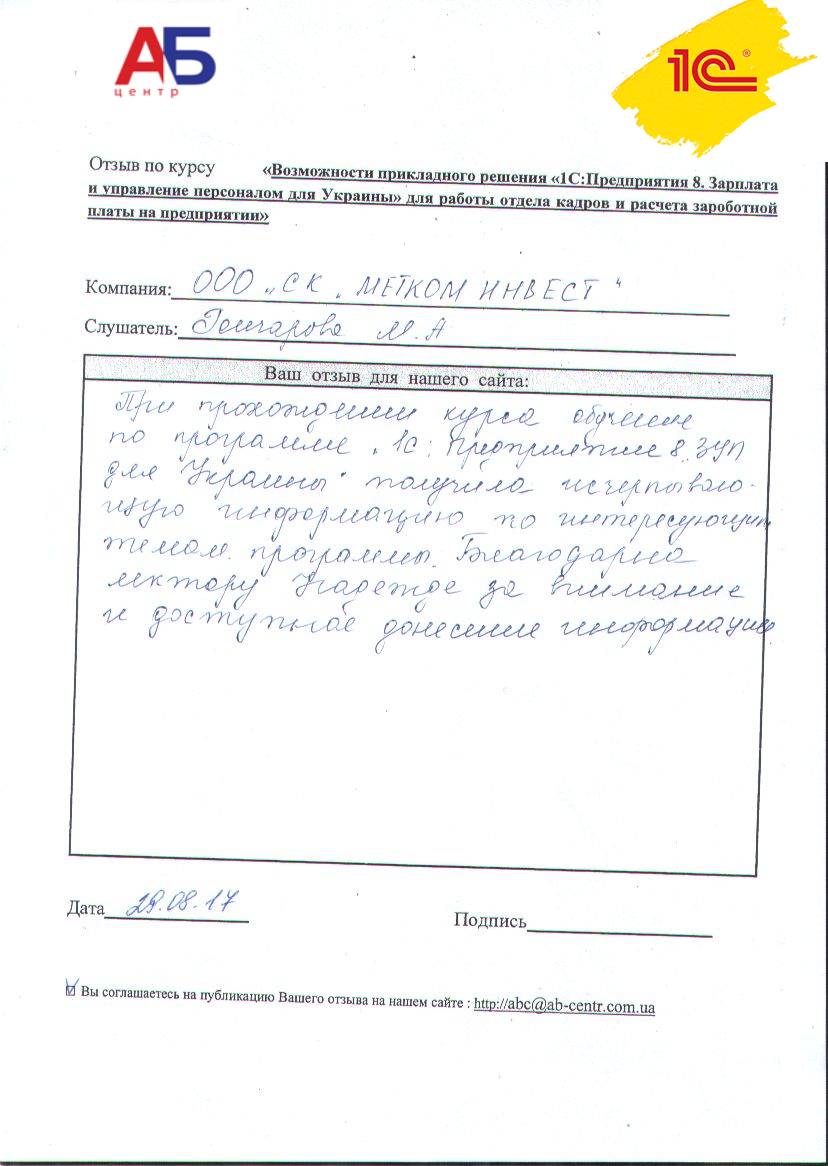 АБ
центр
1С®
Отзыв по курсу «Возможности прикладного решения «1С:Предприятия 8. Зарплата
и управление персоналом для Украины» для работы отдела кадров и расчета зароботной
платы на предприятии»
Компания: ООО „СК „МЕТКОМ ИНВЕСТ“
Слушатель: Гончарова М.А
Ваш отзыв для нашего сайта:
При прохождении курса обучения
по программе „1С: Предприятие 8. ЗУП
для Украины“ получила исчерпываю-
щую информацию по интересующим
темам программы. Благодарна
лектору Надежде за внимание
и доступное донесение информации.
Дата 29.08.17
Подпись
Вы соглашаетесь на публикацию Вашего отзыва на нашем сайте : http://abc@ab-centr.com.ua